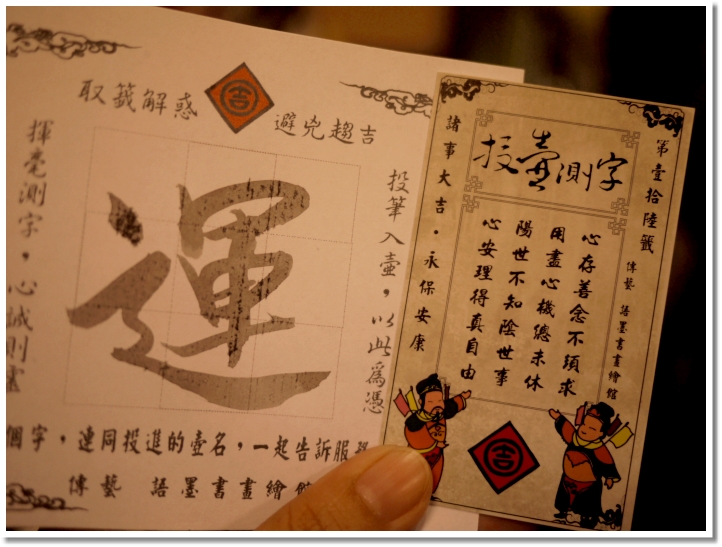 取籤解惑
避兇趨吉
揮毫測字，心誠則靈
運
投筆入壺，以此為憑
個字，連同投進的壺名，一起告訴服務
傳藝 語墨書畫繪館
第壹拾陸籤
傳藝 語墨書畫繪館
投壺測字
諸事大吉．永保安康
心存善念不須求
用盡心機總未休
陽世不知陰世事
心安理得真自由
吉